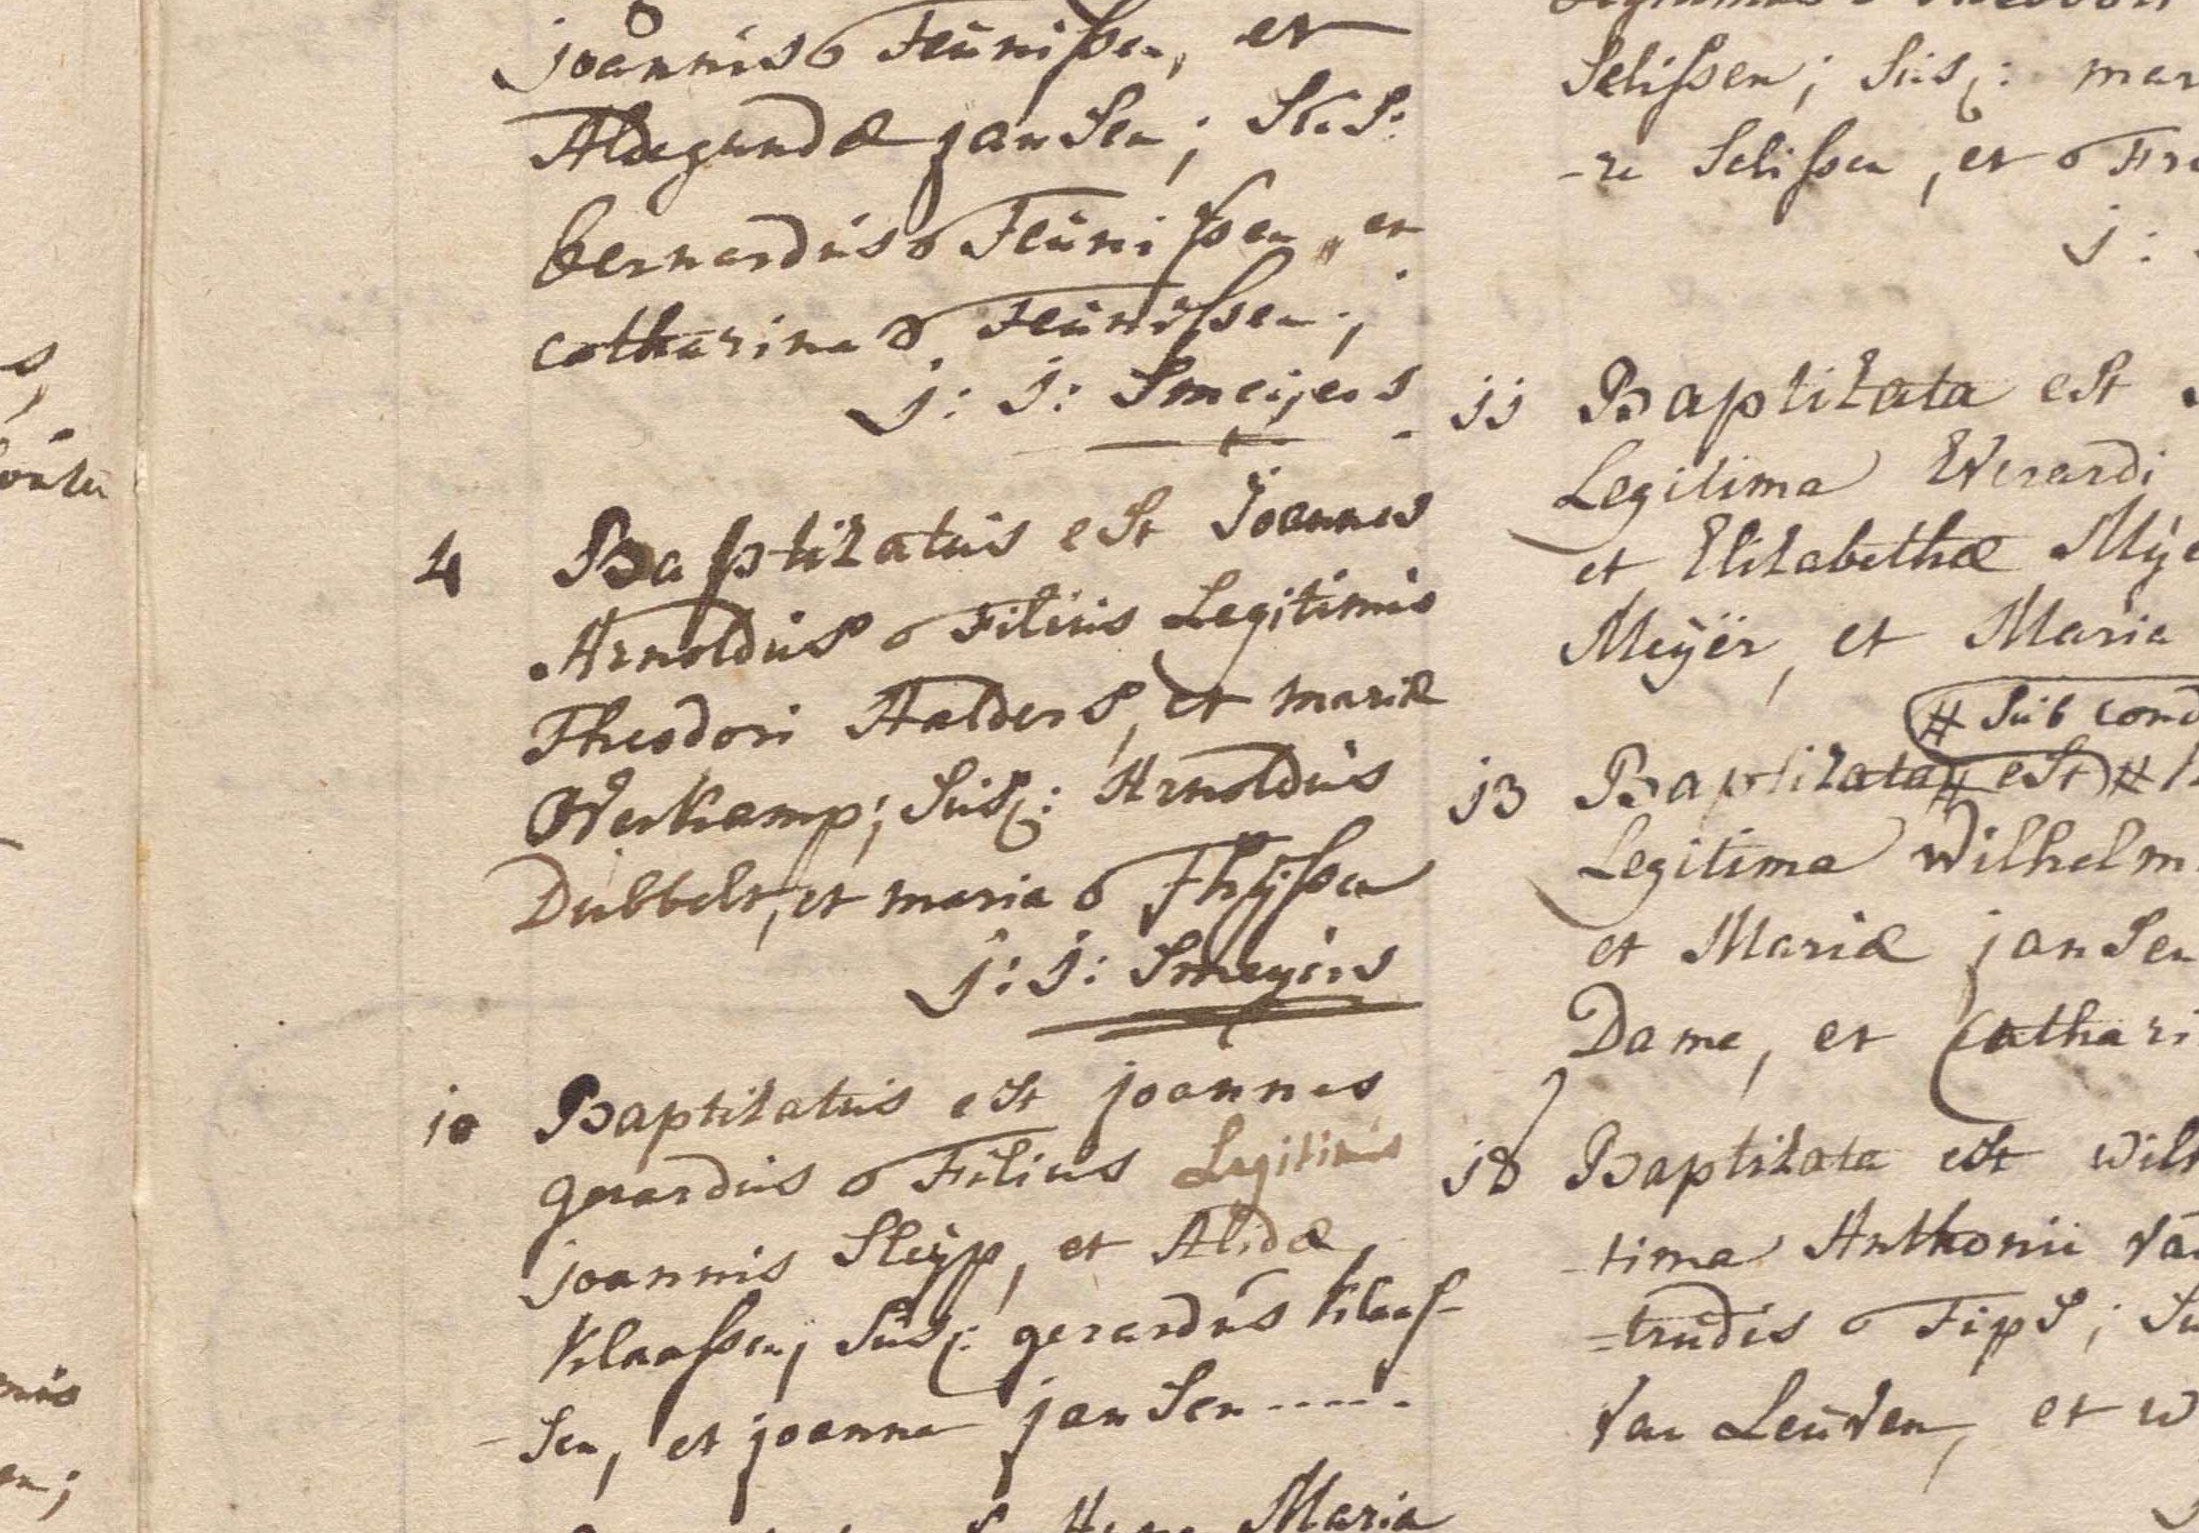 joannis Teunissen, et
Aldegundæ jansen; Sus:
bernardus Teunissen, et
catharina Teunissen;
j: j: Smeijers
4 Baptizatus est Joannes
Arnoldus Filius Legitimus
Theodori Aalders, et mariæ
Werkamp; Sus: Arnoldus
Dubbelt, et maria Thijssen
j: j: Smeyers
10 Baptizatus est joannes
gerardus Filius Legitimus
joannis Sleijp, et Alidæ
Klaassen, Sus: gerardus Klaas-
-sen, et joanna jansen-----.
Maria
Selissen; Sus: mar
-re Selissen, et Fre
j:
jj Baptizata est
Legitima Everardi
et Elizabethæ Mije
Meijër, et Maria
# Sub cond
j3 Baptizata # est #
Legitima Wilhelm
et Mariæ jansen
Dame, et Cathari
j8 Baptizata est wilh
-tima Anthonii Va
=trudis Tips; Su
Van Leuven, et w